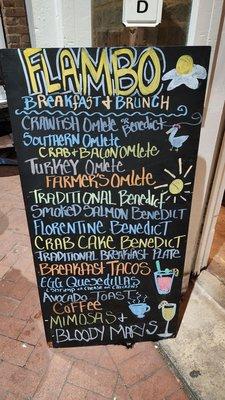 D
FLAMBO
BREAKFAST & BRUNCH
CRAWFISH OMLETE OR BENEDICT
SOUTHERN OMLETE
CRAB + BACON OMLETE
TURKEY OMLETE
FARMERS OMLETE
TRADITIONAL BENEDICT
SMOKED SALMON BENEDICT
FLORENTINE BENEDICT
CRAB CAKE BENEDICT
TRADITIONAL BREAKFAST PLATE
BREAKFAST TACOS
EGG QUESEDILLAS
SHRIMP OR CHEESE OR CHICKEN
AVOCADO TOAST
COFFEE
MIMOSAS &
BLOODY MARYS